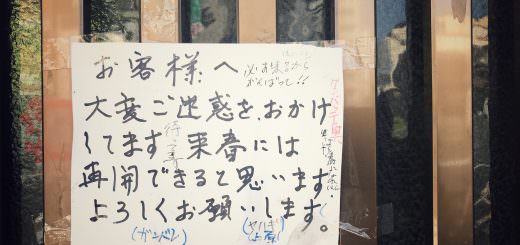 お客様へ
必ず来るから
がんばって!!
大変ご迷惑を、おかけ
してます 来春には
待ってます
再開できると思います
よろしくお願いします。
(ガンバレ)